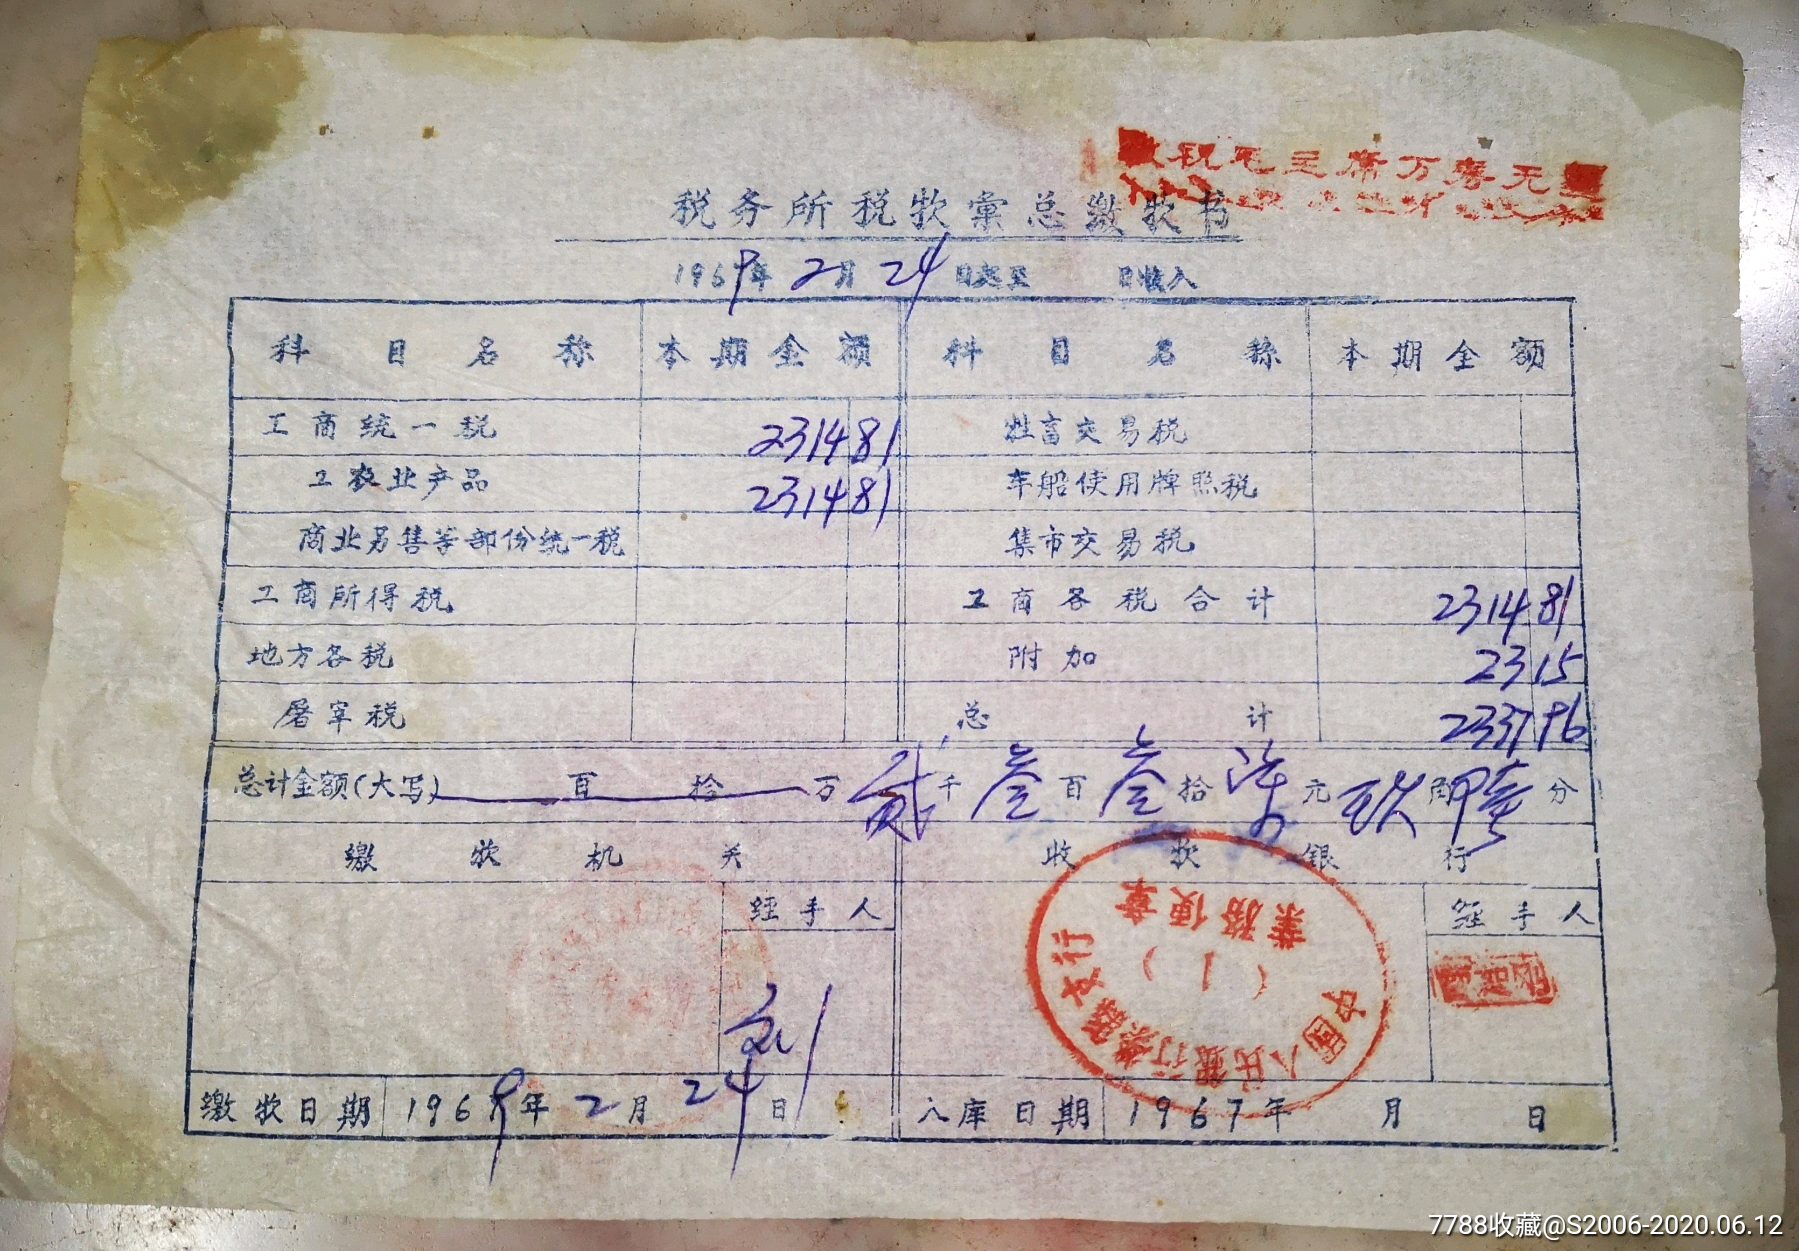 敬祝毛主席万寿无疆
税务所税款彙总缴款书
1969年2月24日起至 日收入
科目名称 本期金额 科目名称 本期金额
工商统一税 231481 牲畜交易税
工农业产品 231481 车船使用牌照税
商业另售等部份统一税 集市交易税
工商所得税 工商各税合计 231481
地方各税 附加 2315
屠宰税 总计 233796
总计金额(大写) 百 拾 万 贰千叁百叁拾柒元玖角陆分
缴款机关 收款银行
经手人 经手人
中国人民银行 县支行
业务便章
(1)
刘
缴款日期 1969年2月24日 入库日期 1967年 月 日
7788收藏@S2006-2020.06.12